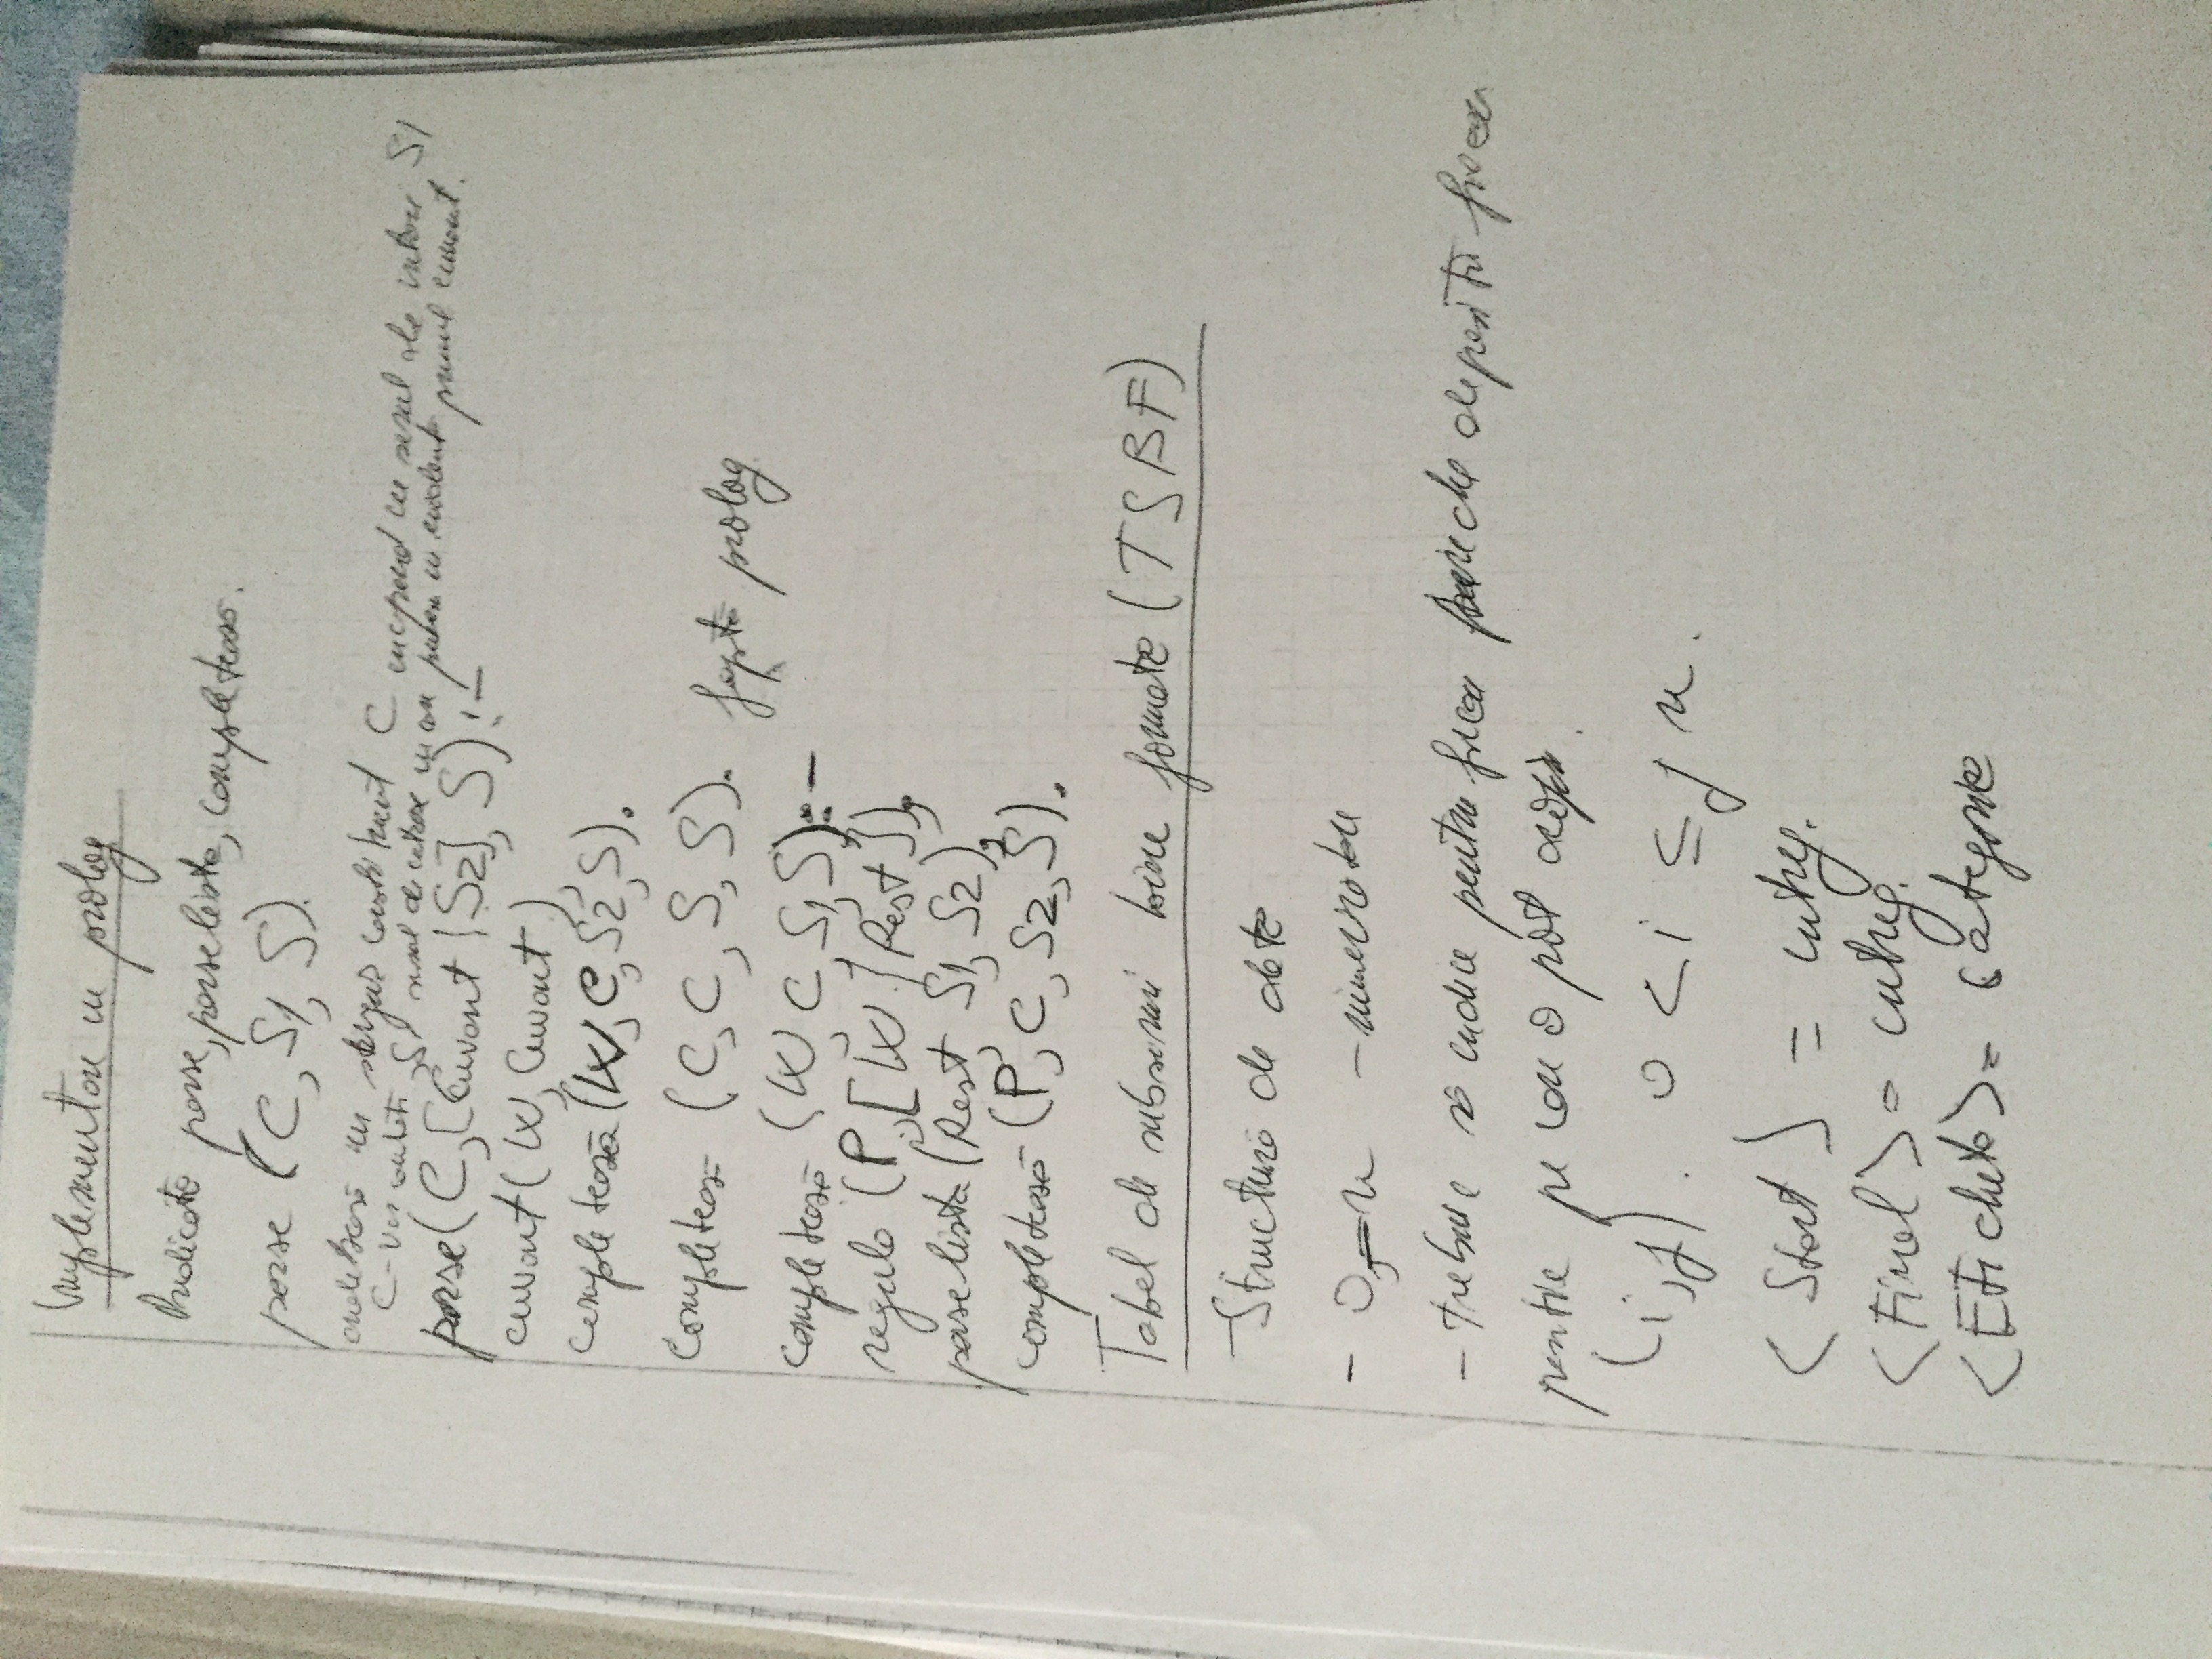 Implementare in prolog
Predicate parse, parselista, completează.
parse (C, S1, S).
analizează un singur constituent C începând cu șirul de intrare S1
C - S1 șirul de intrare in care punem in evidență primul cuvant.
parse(C, [Cuvant | S2], S) :-
cuvant(W, Cuvant),
completează (W, C, S2, S).
completează (C, C, S, S). faptă prolog
completează (W, C, S1, S):-
regula (P, [W | Rest]),
parselista (Rest, S1, S2),
completează (P, C, S2, S).
Tabel de subșiruri bine formate (TSBF)
- Structură de date
- 0, n - numerotare
- trebuie să indice pentru fiecare pereche de poziții fiecare
pe care o pot
(i, j). 0 < i ≤ j n.
<Start> = intreg.
<Final> = intreg.
<Eticheta> = categorie